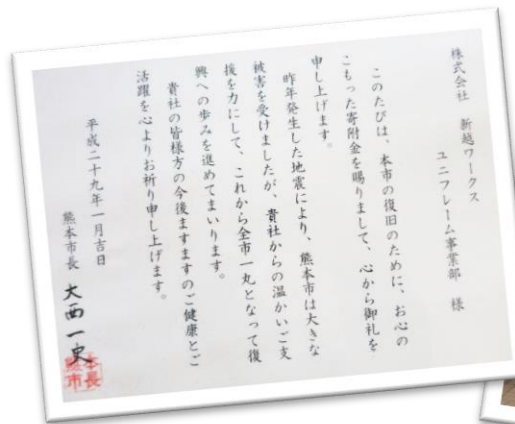 株式会社　新越ワークス
ユニフレーム事業部　様
このたびは、本市の復旧のために、お心の
こもった寄附金を賜りまして、心から御礼を
申し上げます。
昨年発生した地震により、熊本市は大きな
被害を受けましたが、貴社からの温かいご支
援を力にして、これから全市一丸となって復
興への歩みを進めてまいります。
貴社の皆様方の今後ますますのご健康とご
活躍を心よりお祈り申し上げます。
平成二十九年一月吉日
熊本市長　大西一史
熊本市長